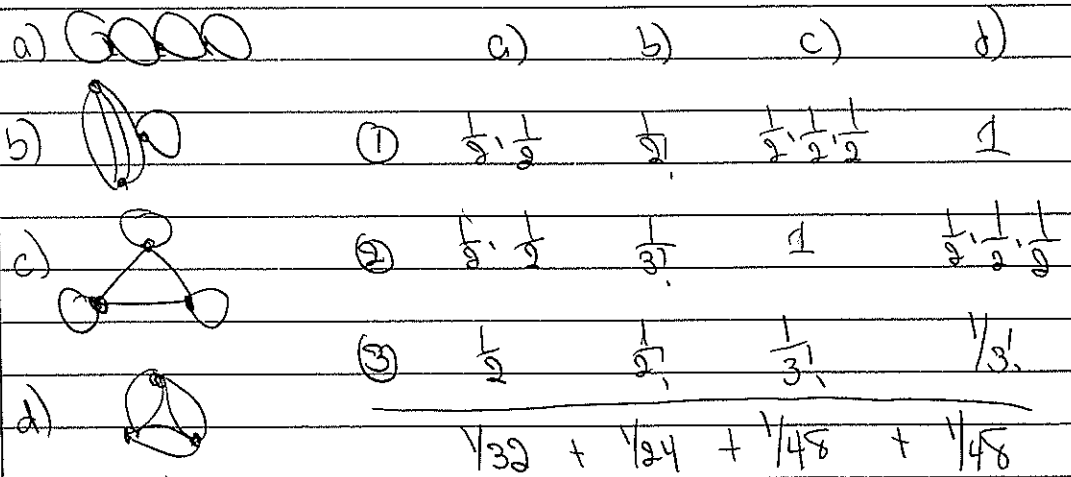 a) a) b) c) d)
b) ① 1/2 · 1/2 1/2! 1/2 · 1/2 · 1/2 1
c) ② 1/2 · 1/2 1/3! 1 1/2 · 1/2 · 1/2
③ 1/2 1/2! 1/3! 1/3!
d) 1/32 + 1/24 + 1/48 + 1/48